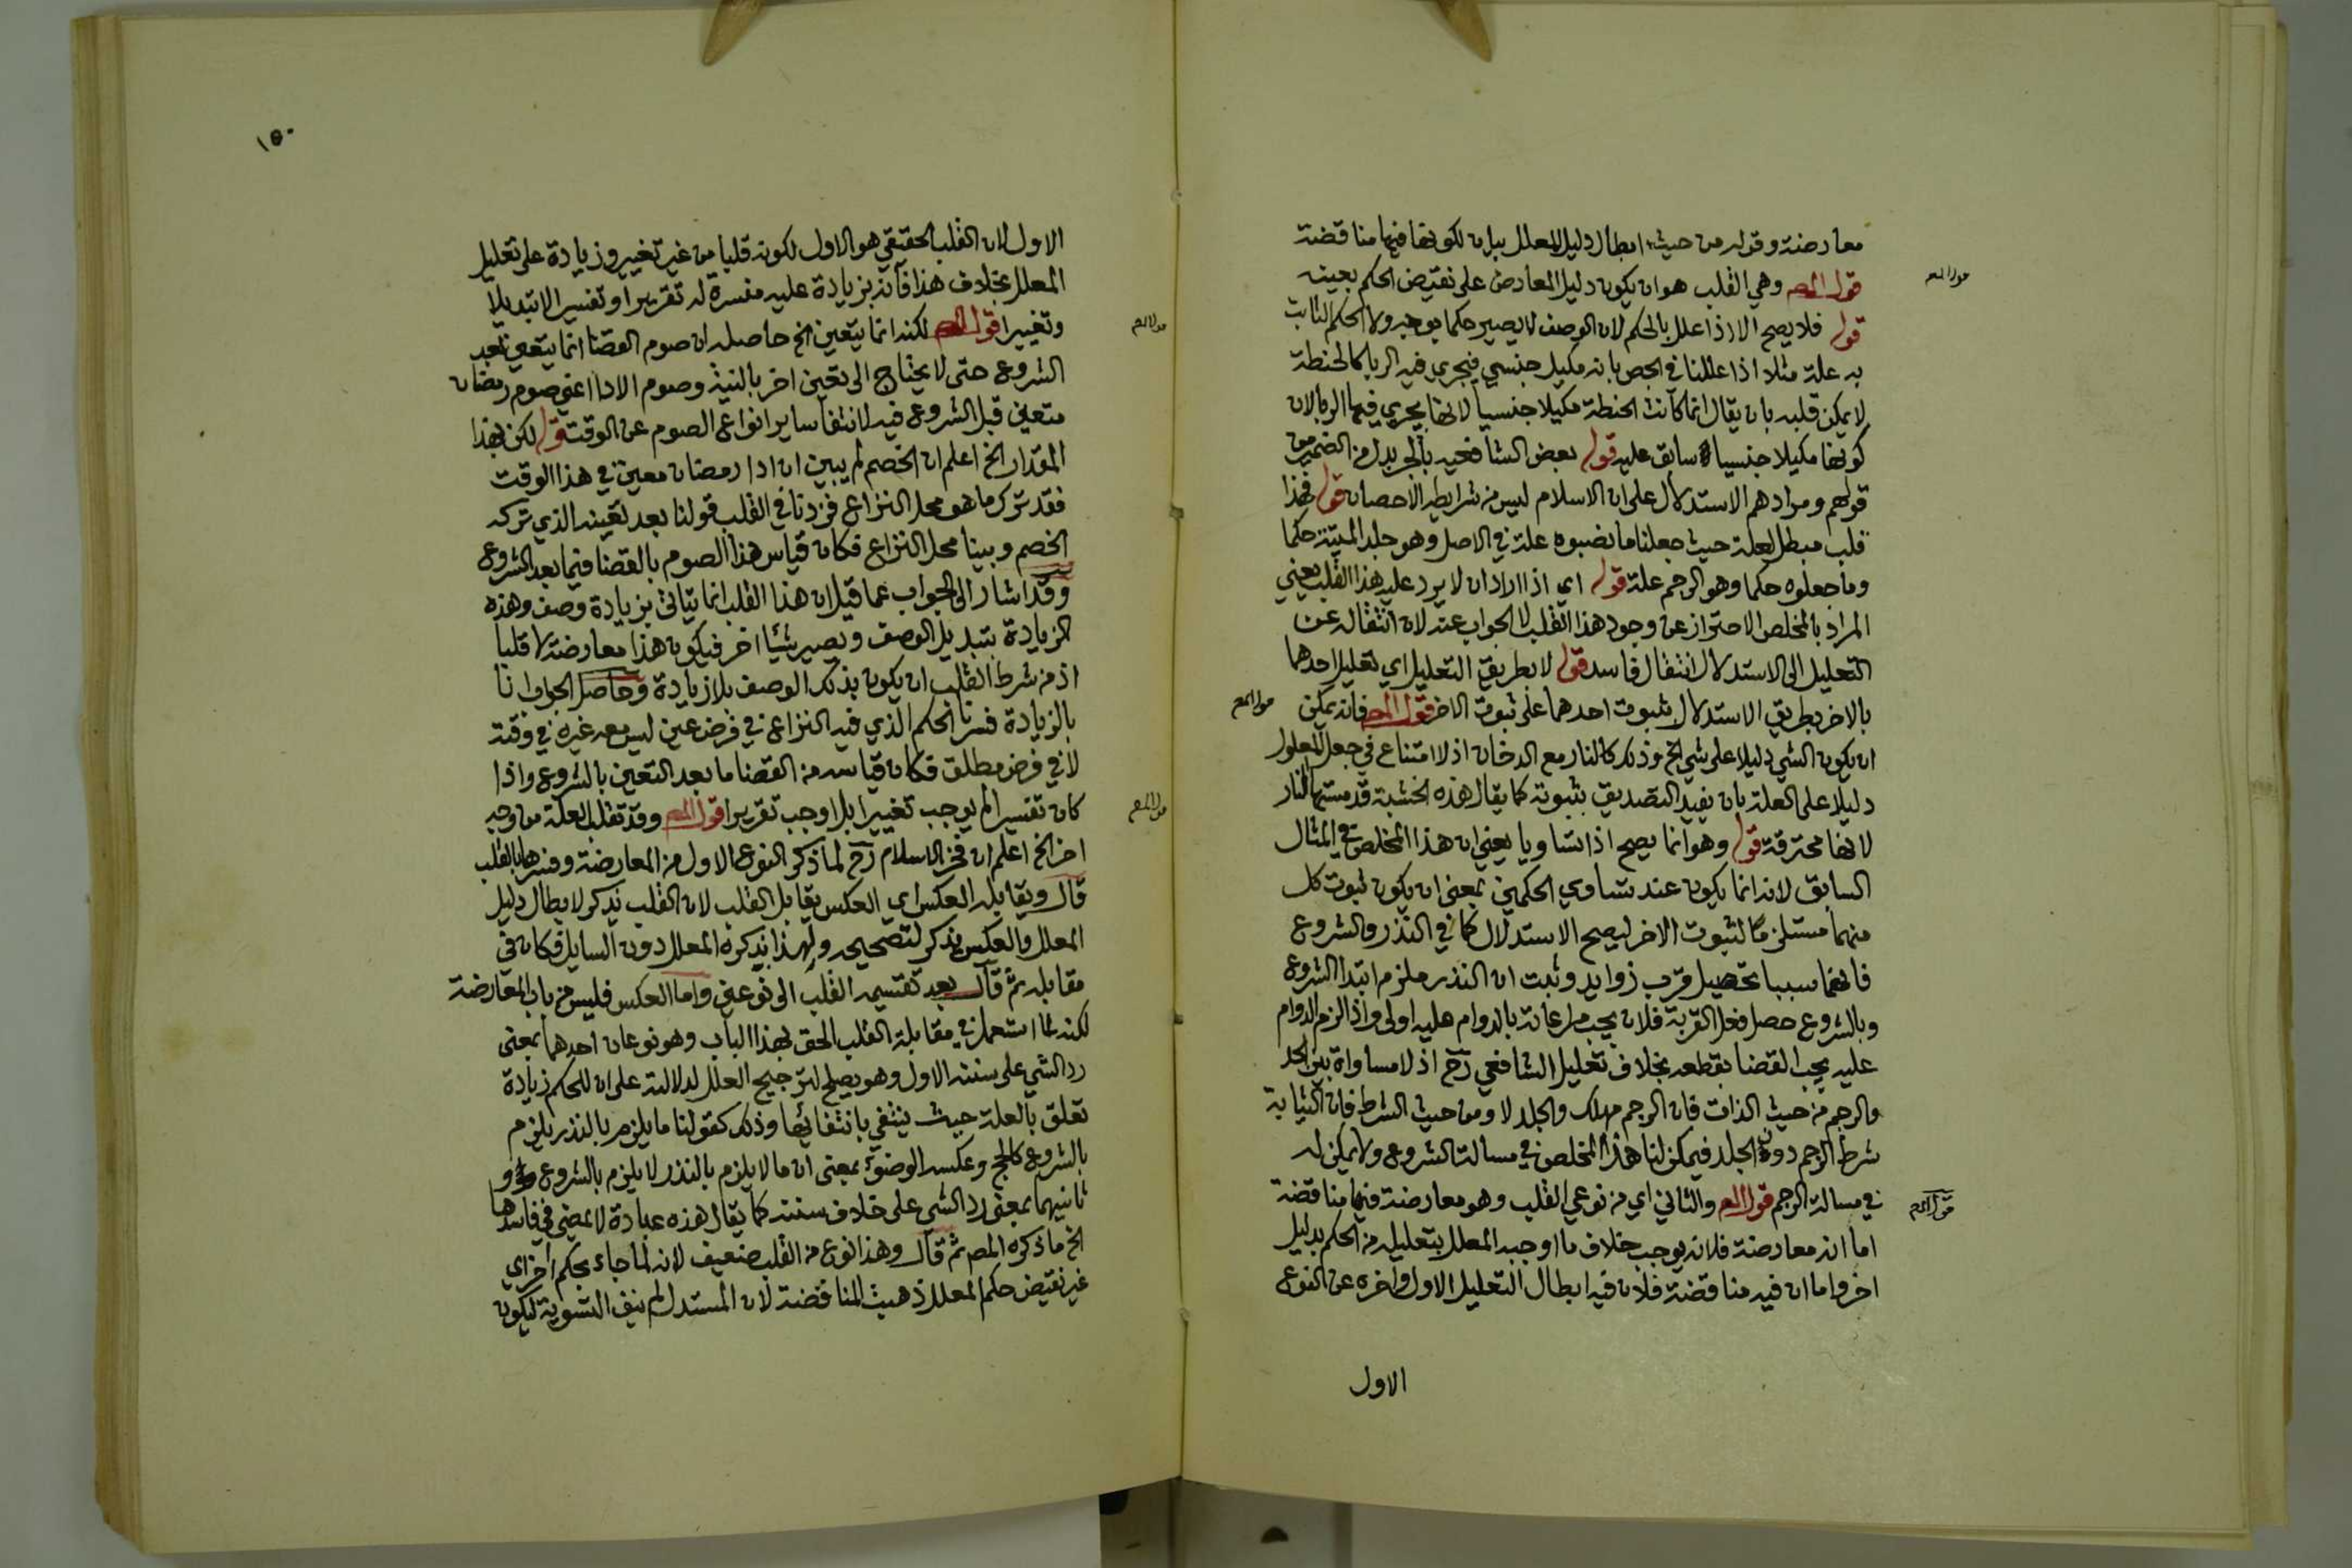 معارضة وقوله من حيث ابطال دليل المعلل بيان لكونها فيها مناقضة
قول المص وهي القلب هو ان يكون دليل المعارض على نقيض الحكم بعينه
قوله فلا يصح الا اذا علل بالحكم لان الوصف لا يصير حكما بوجه ولا الحكم الثابت
به علة مثلا اذا عللنا في الجص بانه مكيل جنسي فيجري فيه الربا كالحنطة
لا يمكن قلبه بان يقال انما كانت الحنطة مكيلا جنسيا لانها يجري فيها الربا لان
كونها مكيلا جنسيا سابق عليه قوله بعض الشافعيه بالجر بدل من الضمير من
قولهم ومرادهم الاستدلال على ان الاسلام ليس من شرايط الاحصان قوله فهذا
قلب مبطل لعلة حيث جعلنا ما نصبوه علة في الاصل وهو جلد المية حكما
وما جعلوه حكما وهو الرجم علة قوله اي اذا اراد ان لا يرد عليه هذا القلب يعني
المراد بالمخلص الاحتراز عن وجود هذا القلب لا الجواب عنه لان انتقاله عن
التعليل الى الاستدلال انتقال فاسد قوله لا بطريق التعليل اي تعليل احدهما
بالاخر بطريق الاستدلال بثبوت احدهما على ثبوت الاخر قول المص فانه يمكن
ان يكون الشي دليلا على شي الخ وذلك كالنار مع الدخان اذ لا امتناع في جعل المعلول
دليلا على العلة بان يفيد التصديق بثبوته كما يقال هذه الخشبة قد مستها النار
لانها محترقة قوله وهو انما يصح اذا تساويا يعني ان هذا المخلص في المثال
السابق لانه انما يكون عند تساوي الحكمين بمعنى ان يكون ثبوت كل
منهما مستلزما لثبوت الاخر ليصح الاستدلال كما في النذر والشروع
فانهما سببا تحصيل قرب زوايد وثبت ان النذر ملزم ابتدا الشروع
وبالشروع حصل فعل القربة فلان يجب مراعاته بالدوام عليه اولى واذا لزم الدوام
عليه يجب القضا بقطعه بخلاف تعليل الشافعي رح اذ لا مساواة بين الجلد
والرجم من حيث الذات فان الرجم مهلك والجلد لا ومن حيث الشرط فان الثيابة
شرط الرجم دون الجلد فيمكن لنا هذا المخلص في مسالة الشروع ولا يمكن له
في مسالة الرجم قول المص والثاني اي من نوعي القلب وهو معارضة فيها مناقضة
اما انه معارضة فلانه يوجب خلاف ما اوجبه المعلل بتعليله من الحكم بدليل
اخر واما ان فيه مناقضة فلان فيه ابطال التعليل الاول واخره عن النوع
الاول
قول المص
قول المص
قول المص
١٥٠
الاول لان القلب الحقيقي هو الاول لكونه قلبا من غير تغيير وزيادة على تعليل
المعلل بخلاف هذا فانه بزيادة عليه مفسرة له تقريرا وتفسير الا تبديلا
وتغييرا قول المص لكنه انما يتعين الخ حاصله ان صوم القضا انما يتعين بعد
الشروع حتى لا يحتاج الى تعين اخر بالنية وصوم الادا اعني صوم رمضان
متعين قبل الشروع فيه لانتفا ساير انواع الصوم عن الوقت قوله لكن بهذا
المقدار الخ اعلم ان الخصم لم يبين ان ادا رمضان معين في هذا الوقت
فقد ترك ما هو محل النزاع فزدنا في القلب قولنا بعد تعينه الذي تركه
الخصم وبينا محل النزاع فكان قياس هذا الصوم بالقضا فيما بعد الشروع
وقد اشار الى الجواب عما قيل ان هذا القلب انما يتاتى بزيادة وصف وهذه
الزيادة بتبديل الوصف ويصير شيا اخر فيكون هذا معارضة لا قلبا
اذ من شرط القلب ان يكون بذلك الوصف بلا زيادة وحاصل الجواب انا
بالزيادة فسرنا الحكم الذي فيه النزاع في فرض عين ليس معه غيره في وقته
لا في فرض مطلق فكان قياسه من القضا ما بعد التعين بالشروع واذا
كان تفسيرا لم يوجب تغييرا بل اوجب تقريرا قول المص وقد تقلب العلة من وجه
اخر الخ اعلم ان فخر الاسلام رح لما ذكر النوع الاول من المعارضة وفسرها بالقلب
قال ويقابله العكس اي العكس يقابل القلب لان القلب يذكر لابطال دليل
المعلل والعكس يذكر لتصحيحه ولهذا يذكره المعلل دون السايل فكان في
مقابله ثم قال بعد تقسيمه القلب الى نوعين واما العكس فليس من باب المعارضة
لكنه لما استعمل في مقابلة القلب الحق بهذا الباب وهو نوعان احدهما بمعنى
رد الشي على سننه الاول وهو يصلح لترجيح العلل لدلالته على ان للحكم زيادة
تعلق بالعلة حيث ينتفي بانتفائها وذلك كقولنا ما يلزم بالنذر يلزم
بالشروع كالحج وعكسه الوضوء بمعنى ان ما لا يلزم بالنذر لا يلزم بالشروع و
ثانيهما بمعنى رد الشي على خلاف سننه كما يقال هذه عبادة لا يمضى في فاسدها
الخ ما ذكره المص ثم قال وهذا نوع من القلب ضعيف لانه لما جاء بحكم اخر اي
غير نقيض حكم المعلل ذهبت المناقضة لان المستدل لم ينف التسوية ليكون
قول المص
قول المص